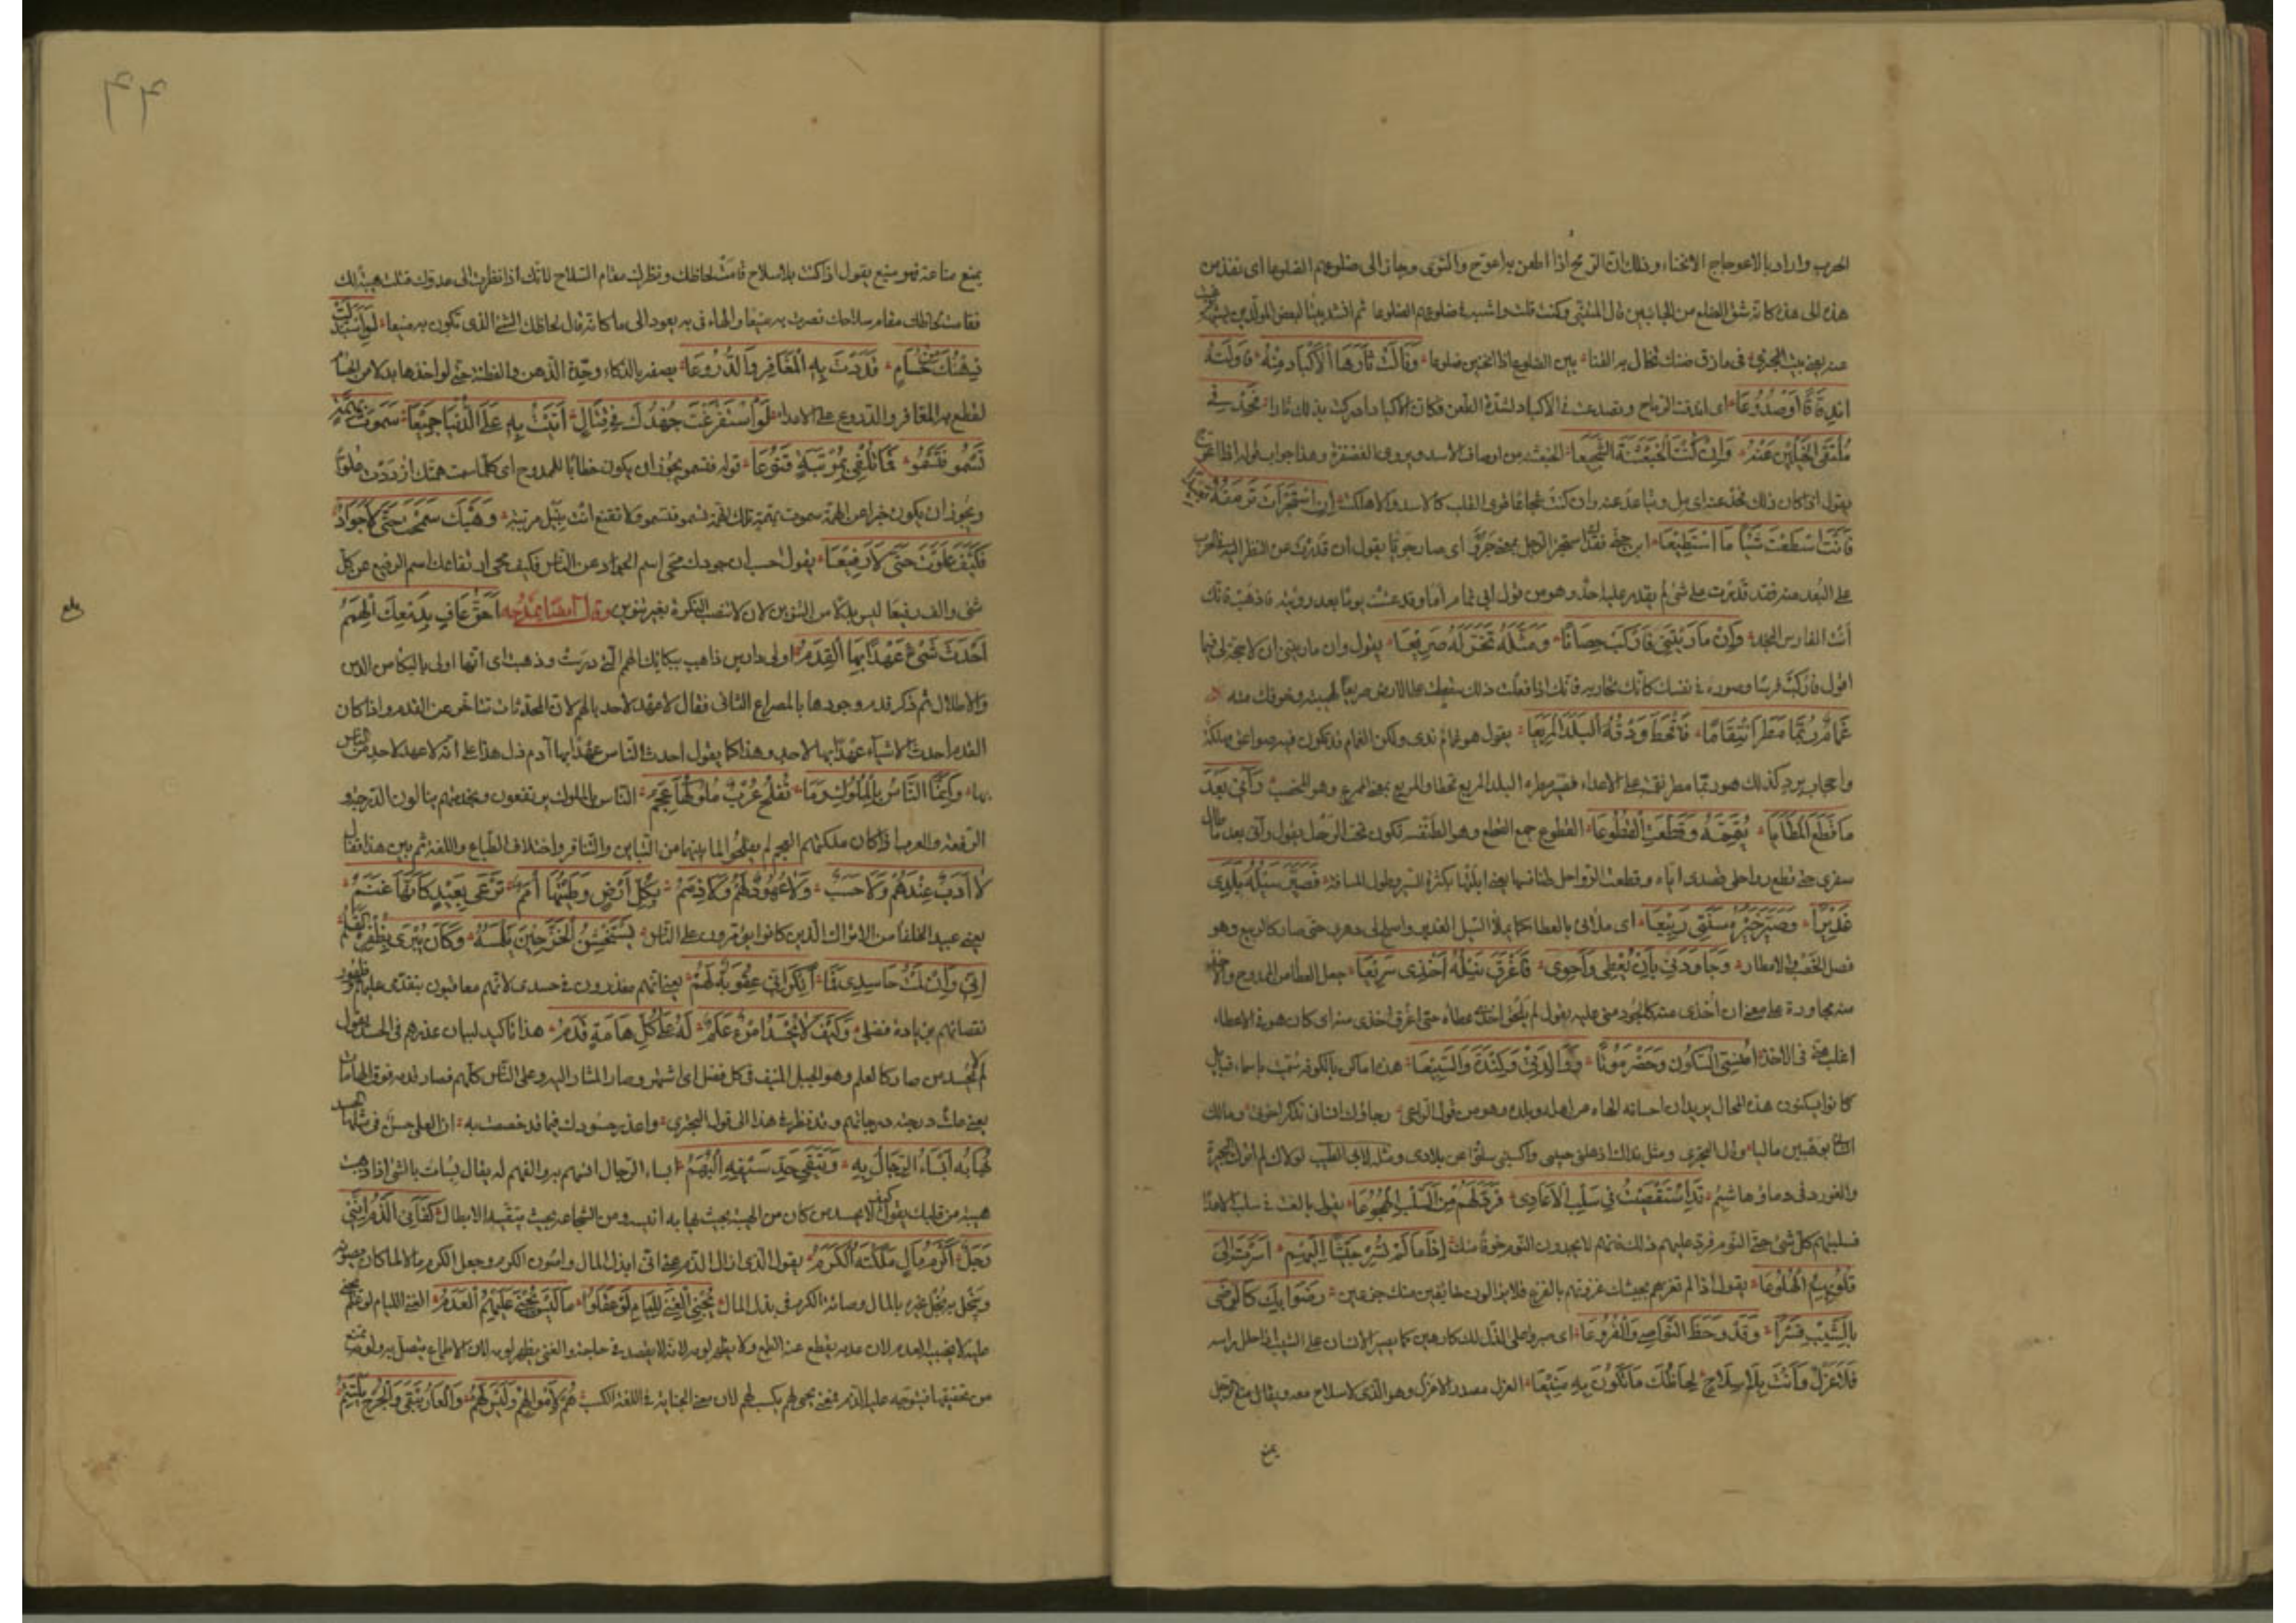 الحرب واراد بالاعوجاج الانحناء وذلك ان الرمح اذا اطعن به اعوج والتوى وجاز الى ضلوعهم الضلوعا اى نفذ من
هذه الى هذه كانه شق الضلع من الجانبين قال المتنبي وكنت قلت واشبب فى ضلوعهم الضلوعا ثم انشد بيتا لبعض المولدين
عند بعض بيت البحترى فى مازق ضنك تخال به القنا بين الضلوع اذا انحنين ضلوعا وَنَالَتْ ثَأْرَهَا الْأَكْبَادُ مِنْهُ فَأَوْلَتْهُ
انْدِقَاقًا أَوْ صُدُوعًا اى اندقت الرماح وتصدعت فى الاكباد لشدة الطعن فكان الاكباد ادركت بذلك ثارا فَحِدْ فِى
مُلْتَقَى الْخَيْلَيْنِ عَنْهُ وَإِنْ كُنْتَ الْخُبَعْثِنَةَ الشَّجِيعَا الخبعثنه من اوصاف الاسد ويروى الغضنفرة وهذا جواب قوله اذا اعوج
يقول اذا كان ذلك فحد عنه اى مل وتباعد عنه وان كنت شجاعا قوى القلب كالاسد والا هلكت إِنِ اسْتَجْرَأْتَ تَرْمُقُهُ بَعِيدًا
فَأَنْتَ اسْطَعْتَ شَيْئًا مَا اسْتُطِيعَا ابن جنى يقال استجرأ الرجل بمعنى جرؤ اى صار جريئا يقول ان قدرت على النظر اليه فى الحرب
على البعد منه فقد قدرت على شئ لم يقدر عليه احد وهو من قول ابى تمام اما وقد عشت يوما بعد رؤيته فاذهب فانك
انت الفارس النجد وَإِنْ مَارَيْتَنِى فَارْكَبْ حِصَانًا وَمَثِّلْهُ تَخِرَّ لَهُ صَرِيعَا يقول وان ماريتنى ان لا صحة لى فيما
اقول فاركب فرسا وصوره فى نفسك كانك تحاربه فانك اذا فعلت ذلك سقطت على الارض صريعا لهيبته وخوفك منه
غَمَامٌ رُبَّمَا مَطَرَ انْتِقَامًا فَأَقْحَطَ وَدْقُهُ الْبَلَدَ الْمَرِيعَا يقول هو غمام ندى ولكن الغمام قد تكون فيه صواعق مهلكة
واحجار برد كذلك هو ربما مطر نقمة على الاعداء فصير مطره البلد المريع قحطا والمريع بمعنى الممرع وهو الخصب رَآنِى بَعْدَ
مَا قَطَعَ الْمَطَايَا تَيَمُّمُهُ وَقَطَّعَتِ الْقُطُوعَا القطوع جمع القطع وهو الطنفسه تكون تحت الرحل يقول رآنى بعد ما طال
سفرى حتى قطع رواحلى قصدى اياه وقطعت الرواحل طنافسها يعنى ابلتها بكثرة السير وطول المسافة فَصَيَّرَ سَيْلُهُ بَلَدِى
غَدِيرًا وَصَيَّرَ خَيْرُهُ سَنَتِى رَبِيعَا اى ملأنى بالعطا كما يملأ السيل الغدير واسع الى دهرى حتى صار كالربيع وهو
فصل الخصب والامطار وَجَاوَدَنِى بِأَنْ يُعْطِى وَأَحْوِى فَأَغْرَقَ نَيْلُهُ أَخْذِى سَرِيعَا جعل العطا من الممدوح والاخذ
منه مجاودة على معنى ان اخذى منه كالجود منى عليه يقول لم يلحق اخذى عطاه حتى اغرق اخذى منه اى كان هو فى الاعطاء
اغلب منى فى الاخذ أَمُنْسِىَّ السَّكُونَ وَحَضْرَمَوْتًا وَوَالِدَتِى وَكِنْدَةَ وَالسَّبِيعَا هذه اماكن بالكوفه سميت باسماء قبايل
كانوا يسكنون هذه المحال يريد ان احسانه الهاه عن اهله وبلده وهو من قول الراعى رجاؤك انسانى تذكر اخوتى ومالك
انسانى بوهبين ماليا وقال البحترى ومثل نداك اذهلنى حبيبى واكسبنى سلوا عن بلادى ومثل لابى الطيب لولاك لم اترك البحيرة
والغور دفى وماؤها شبم قَدِ اسْتَقْصَيْتَ فِى سَلْبِ الْأَعَادِى فَرُدَّ لَهُمْ مِنَ السَّلْبِ الْهُجُوعَا يقول بالغت فى سلب الاعدا
فسلبتهم كل شئ حتى النوم فرد عليهم ذلك فانهم لا يجدون النوم خوفا منك إِذَا مَا لَمْ تُسِرْ جَيْشًا إِلَيْهِمْ أَسَرْتَ إِلَى
قُلُوبِهِمِ الْهُلُوعَا يقول اذا لم تغزهم بجيشك غزوتهم بالفزع فلا يزالون خايفين منك جزعين رَضُوا بِكَ كَالرِّضَى
بِالشَّيْبِ قَسْرًا وَقَدْ وَخَطَ النَّوَاصِىَ وَالْفُرُوعَا اى صبروا على الذل لك كارهين كما يصبر الانسان على الشيب اذا حل براسه
فَلَا عَزَلٌ وَأَنْتَ بِلَا سِلَاحٍ لِحَاظُكَ مَا تَكُونُ بِهِ مَنِيعَا العزل مصدر الاعزل وهو الذى لا سلاح معه ويقال منع الرجل
يمنع
٤٤
يمنع مناعة فهو منيع يقول اذا كنت بلا سلاح قامت لحاظك ونظرك مقام السلاح لانك اذا نظرت الى عدوك قتلت هيبة لك
فقامت لحاظك مقام سلاحك فصرت به منيعا والهاء فى به يعود الى ما كانه قال لحاظك الشئ الذى تكون به منيعا لَوِ اسْتَبْدَلْتَ
ذِهْنَكَ مِنْ حُسَامٍ قَدَدْتَ بِهِ الْمَغَافِرَ وَالدُّرُوعَا يصفه بالذكاء وحدة الذهن والفطنة حتى لو اخذها بدلا من الحسام
لقطع به المغافر والدروع على الاعداء لَوِ اسْتَفْرَغْتَ جُهْدَكَ فِى قِتَالٍ أَتَيْتَ بِهِ عَلَى الدُّنْيَا جَمِيعَا سَمَوْتَ بِهِمَّةٍ
تَسْمُو فَتَسْمُو فَمَا تُلْفَى بِمَرْتَبَةٍ قَنُوعَا قوله فتسمو يجوز ان يكون خطابا للممدوح اى كلما سمت همتك ازددت علوا
ويجوز ان يكون خبرا عن الهمة سموت بهمة تلك الهمة تسمو فتسمو ولا تقنع انت بنيل مرتبة وَهَبْكَ سَمَحْتَ حَتَّى لَا جَوَادٌ
فَكَيْفَ عَلَوْتَ حَتَّى لَا رَفِيعَا يقول حسب ان جودك محى اسم الجواد عن الناس فكيف محى ارتفاعك اسم الرفيع عن كل
شئ والف رفيعا ليس بدلا من التنوين لان لا تنصب النكرة بغير تنوين وقال ايضا يمدحه أَحَقُّ عَافٍ بِدَمْعِكَ الْهِمَمُ
بلغ
أَحْدَثُ شَىْءٍ عَهْدًا بِهَا الْقِدَمُ اولى دارس ذاهب ببكائك الهمم التى درست وذهبت اى انها اولى بالبكا من الدمن
والاطلال ثم ذكر قدم وجودها بالمصراع الثانى فقال لا عهد لاحد بالهمم لان المحدثات تتأخر عن القدم واذا كان
القدم احدث الاشياء عهدا بها لاحد وهذا كما يقول احدث الناس عهدا بها آدم دل هذا على انه لا عهد لاحد من الناس
بها وَإِنَّمَا النَّاسُ بِالْمُلُوكِ وَمَا تُفْلِحُ عُرْبٌ مُلُوكُهَا عَجَمُ الناس بالملوك يرتفعون وبخدمتهم ينالون الدرجة و
الرفعة والعرب اذا كان ملكتهم العجم لم يفلحوا لما بينهما من التباين والتنافر واختلاف الطباع واللغة ثم بين هذا فقال
لَا أَدَبٌ عِنْدَهُمْ وَلَا حَسَبٌ وَلَا عُهُودٌ لَهُمْ وَلَا ذِمَمُ بِكُلِّ أَرْضٍ وَطِئْتُهَا أُمَمٌ تُرْعَى بِعَبْدٍ كَأَنَّهَا غَنَمُ
يعنى عبيد الخلفا من الاتراك الذين كانوا يؤمرون على الناس يَسْتَخْشِنُ الْخَزَّ حِينَ يَلْمِسُهُ وَكَانَ يُبْرَى بِظُفْرِهِ الْقَلَمُ
إِنِّى وَإِنْ لُمْتُ حَاسِدِىَّ فَمَا أُنْكِرُ أَنِّى عُقُوبَةٌ لَهُمُ يعنى انهم معذورون فى حسدى لانهم معاقبون بتقدمى عليهم وظهور
نقصانهم بزيادة فضلى وَكَيْفَ لَا يُحْسَدُ امْرُؤٌ عَلَمٌ لَهُ عَلَى كُلِّ هَامَةٍ قَدَمُ هذا تاكيد لبيان عذرهم فى الحسد يقول
لم لا يحسد من صار كالعلم وهو الجبل المنيف فى كل فضل اى اشتهر وصار المشار اليه وعلى الناس كلهم فصار قدمه فوق الهامات
يعنى علت درجته درجاتهم وقد نظر فى هذا الى قول البحترى واعذر حسودك فيما قد خصصت به ان العلى حسن فى مثلها الحسد
يَهَابُهُ أَبْسَأُ الرِّجَالِ بِهِ وَتَتَّقِى حَدَّ سَيْفِهِ الْبُهَمُ ابسا الرجال انسهم به والفهم له يقال بسأت بالشئ اذا ذهبت
هيبته من قلبك يقول كيف لا يحسد من كان من الهيبة بحيث يهابه انيسه ومن الشجاعة بحيث يتقيه الابطال كَفَانِىَ الذَّمَّ أَنَّنِى
رَجُلٌ أَكْرَمُ مَالٍ مَلَكْتُهُ الْكَرَمُ يقول الذى ازال الذم عنى انى ابذل المال واصون الكرم وجعل الكرم مالا لما كان يصونه
ويبخل به بخل غيره بالمال وصيانة الكرم فى بذل المال يَجْنِى الْغِنَى لِلِّئَامِ لَوْ عَقَلُوا مَا لَيْسَ يَجْنِى عَلَيْهِمُ الْعَدَمُ الغنى للئام لو
عليه لا يجنيه العدم لان عدمه يقطع عنه الطمع ولا يظهر لومه لانه لا يقصد فى حاجة والغنى يظهر لومه لان الاطماع يتصل به ولومه يمنع
من تحقيقها فيتوجه عليه الذم فمعنى يجنى لهم يكسب لهم لان معنى الجناية فى اللغة الكسب هُمْ لِأَمْوَالِهِمْ وَلَيْسَ لَهُمْ وَالْعَارُ يَبْقَى وَالْجُرْحُ يَلْتَئِمُ